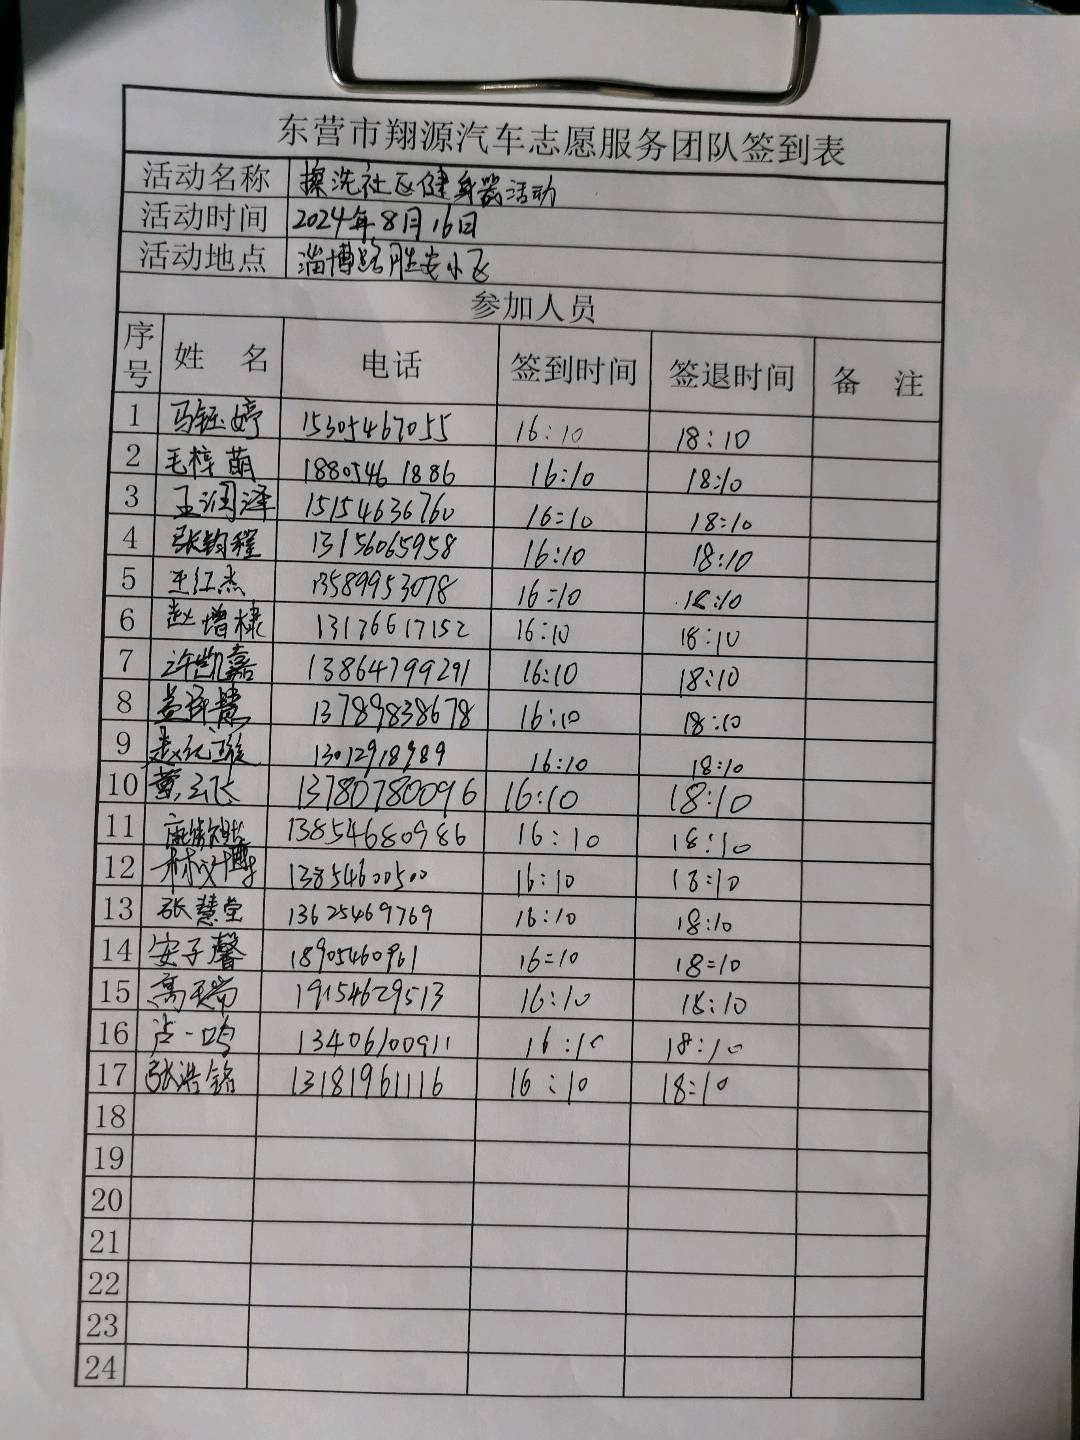 东营市翔源汽车志愿服务团队签到表
活动名称 擦洗社区健身器活动
活动时间 2024年8月16日
活动地点 淄博路胜安小区
参加人员
序号 姓 名 电话 签到时间 签退时间 备 注
1 马钰婷 15305467055 16:10 18:10
2 毛梓萌 18805461886 16:10 18:10
3 王润泽 15154636760 16:10 18:10
4 张钧程 13156065958 16:10 18:10
5 王红杰 13589953078 16:10 18:10
6 赵增棣 13176617152 16:10 18:10
7 许凯嘉 13864799291 16:10 18:10
8 13789838678 16:10 18:10
9 13012918989 16:10 18:10
10 董云飞 13780780096 16:10 18:10
11 13854680986 16:10 18:10
12 13854600500 16:10 18:10
13 张慧莹 13625469769 16:10 18:10
14 安子馨 18905460961 16:10 18:10
15 高瑞 19154629513 16:10 18:10
16 卢一鸣 13406100911 16:10 18:10
17 张浩铭 13181961116 16:10 18:10
18
19
20
21
22
23
24